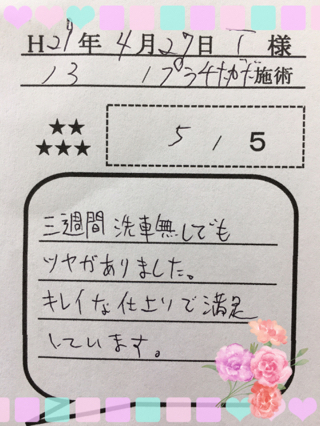 H29年4月27日 T 様
施術
★★
★★★
5 / 5
三週間洗車無しでも
ツヤがありました。
キレイな仕上りで満足
しています。